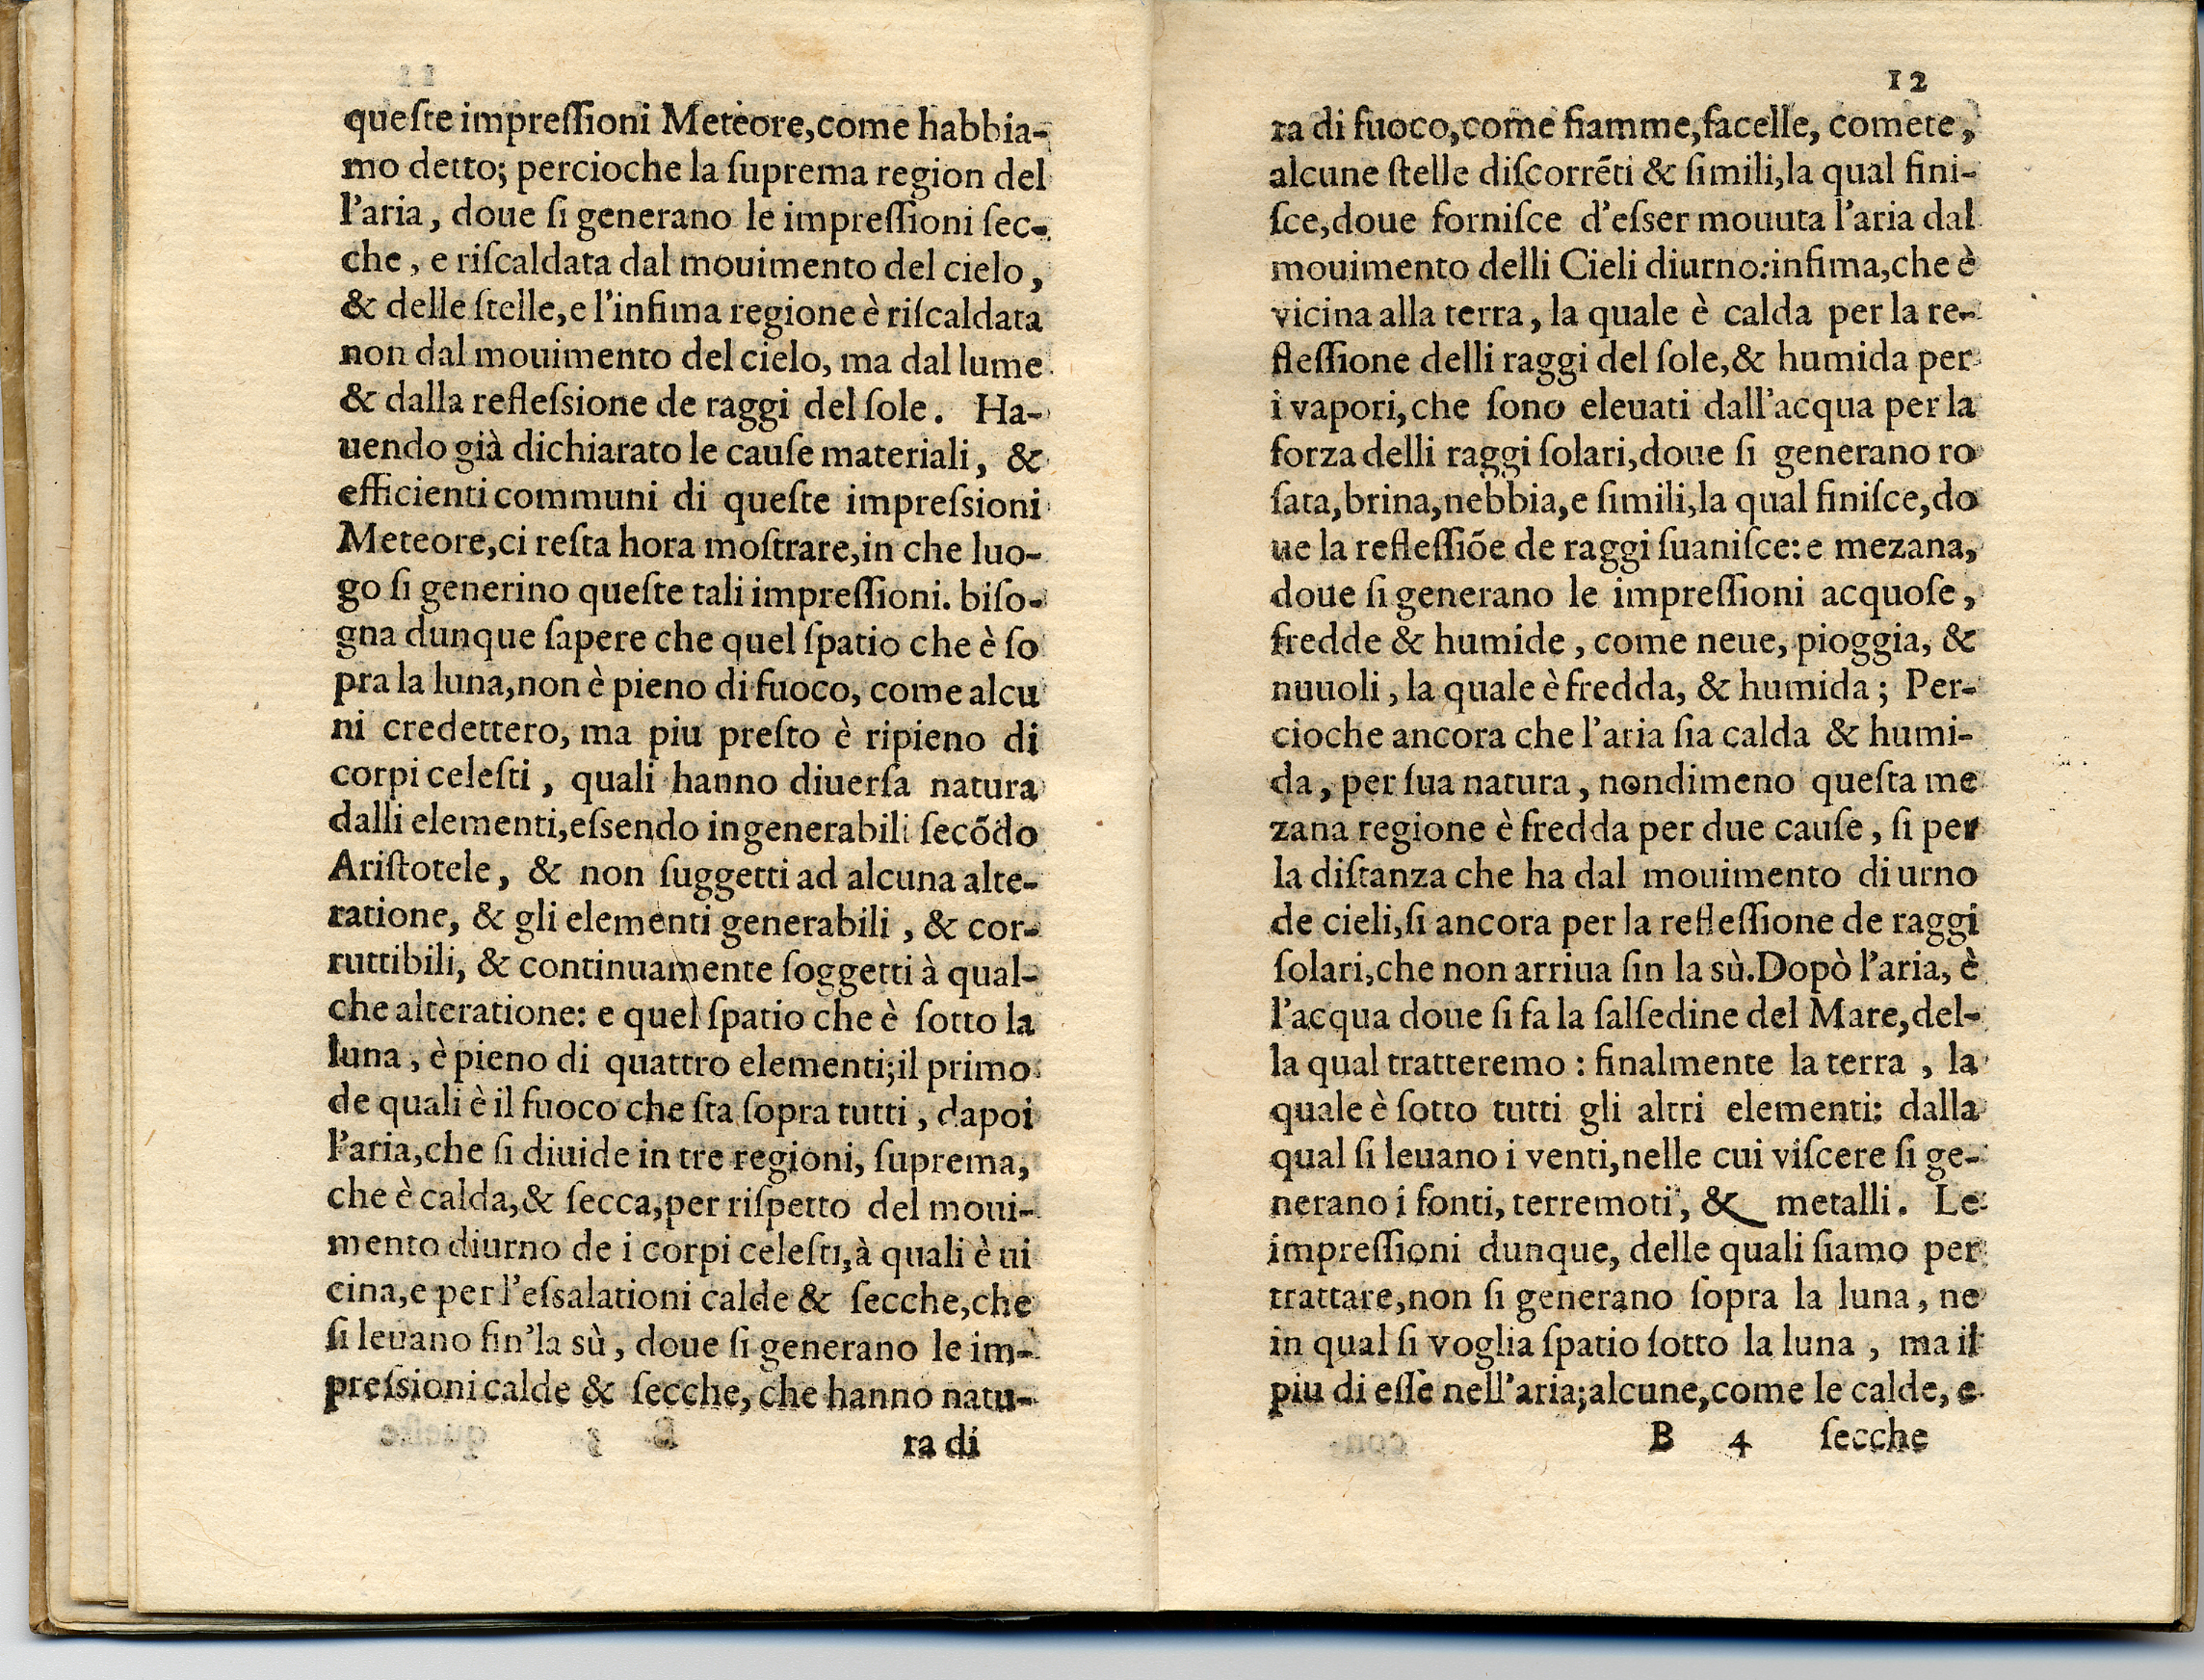 queſte impreſſioni Meteore,come habbia-
mo detto; percioche la ſuprema region del
l'aria, doue ſi generano le impreſſioni ſec-
che, e riſcaldata dal mouimento del cielo,
& delle ſtelle,e l'infima regione è riſcaldata
non dal mouimento del cielo, ma dal lume
& dalla refleſsione de raggi del ſole. Ha-
uendo già dichiarato le cauſe materiali, &
efficienti communi di queſte impreſsioni
Meteore,ci reſta hora moſtrare,in che luo-
go ſi generino queſte tali impreſſioni. biſo-
gna dunque ſapere che quel ſpatio che è ſo
pra la luna,non è pieno di fuoco, come alcu
ni credettero, ma piu preſto è ripieno di
corpi celeſti, quali hanno diuerſa natura
dalli elementi,eſsendo ingenerabili ſecõdo
Ariſtotele, & non ſuggetti ad alcuna alte-
ratione, & gli elementi generabili, & cor-
ruttibili, & continuamente ſoggetti à qual-
che alteratione: e quel ſpatio che è ſotto la
luna, è pieno di quattro elementi;il primo
de quali è il fuoco che ſta ſopra tutti, dapoi
l'aria,che ſi diuide in tre regioni, ſuprema,
che è calda,& ſecca,per riſpetto del moui-
mento diurno de i corpi celeſti,à quali è ui
cina,e per l'eſsalationi calde & ſecche,che
ſi leuano fin'la sù, doue ſi generano le im-
preſsioni calde & ſecche, che hanno natu-
ra di
12
ra di fuoco,come fiamme,facelle, comete,
alcune ſtelle diſcorrẽti & ſimili,la qual fini-
ſce,doue forniſce d'eſser mouuta l'aria dal
mouimento delli Cieli diurno:infima,che è
vicina alla terra, la quale è calda per la re-
fleſſione delli raggi del ſole,& humida per
i vapori,che ſono eleuati dall'acqua per la
forza delli raggi ſolari,doue ſi generano ro
ſata,brina,nebbia,e ſimili,la qual finiſce,do
ue la refleſſiõe de raggi ſuaniſce: e mezana,
doue ſi generano le impreſſioni acquoſe,
fredde & humide, come neue, pioggia, &
nuuoli, la quale è fredda, & humida; Per-
cioche ancora che l'aria ſia calda & humi-
da, per ſua natura, nondimeno queſta me
zana regione è fredda per due cauſe, ſi per
la diſtanza che ha dal mouimento diurno
de cieli,ſi ancora per la refleſſione de raggi
ſolari,che non arriua ſin la sù.Dopò l'aria, è
l'acqua doue ſi fa la ſalſedine del Mare,del-
la qual tratteremo: finalmente la terra, la
quale è ſotto tutti gli altri elementi: dalla
qual ſi leuano i venti,nelle cui viſcere ſi ge-
nerano i fonti, terremoti, & metalli. Le
impreſſioni dunque, delle quali ſiamo per
trattare,non ſi generano ſopra la luna, ne
in qual ſi voglia ſpatio ſotto la luna, ma il
piu di eſſe nell'aria;alcune,come le calde, e
B 4 ſecche